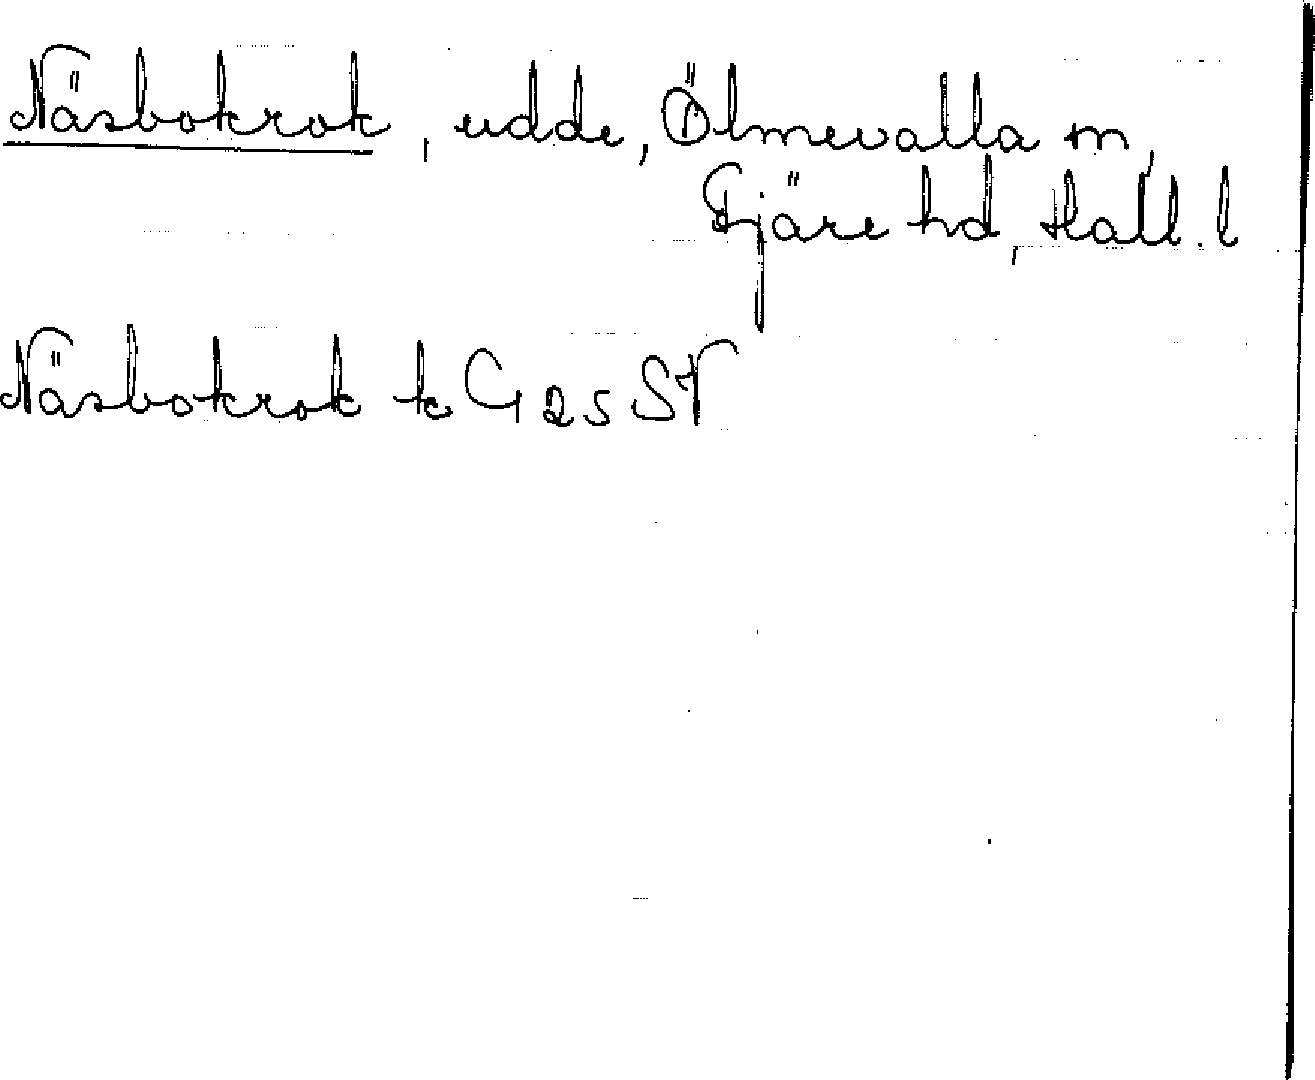 Näsbokrok, udde, Ölmevalla sn,
Fjäre hd, Hall. l
Näsbokrok tc G 25 SV